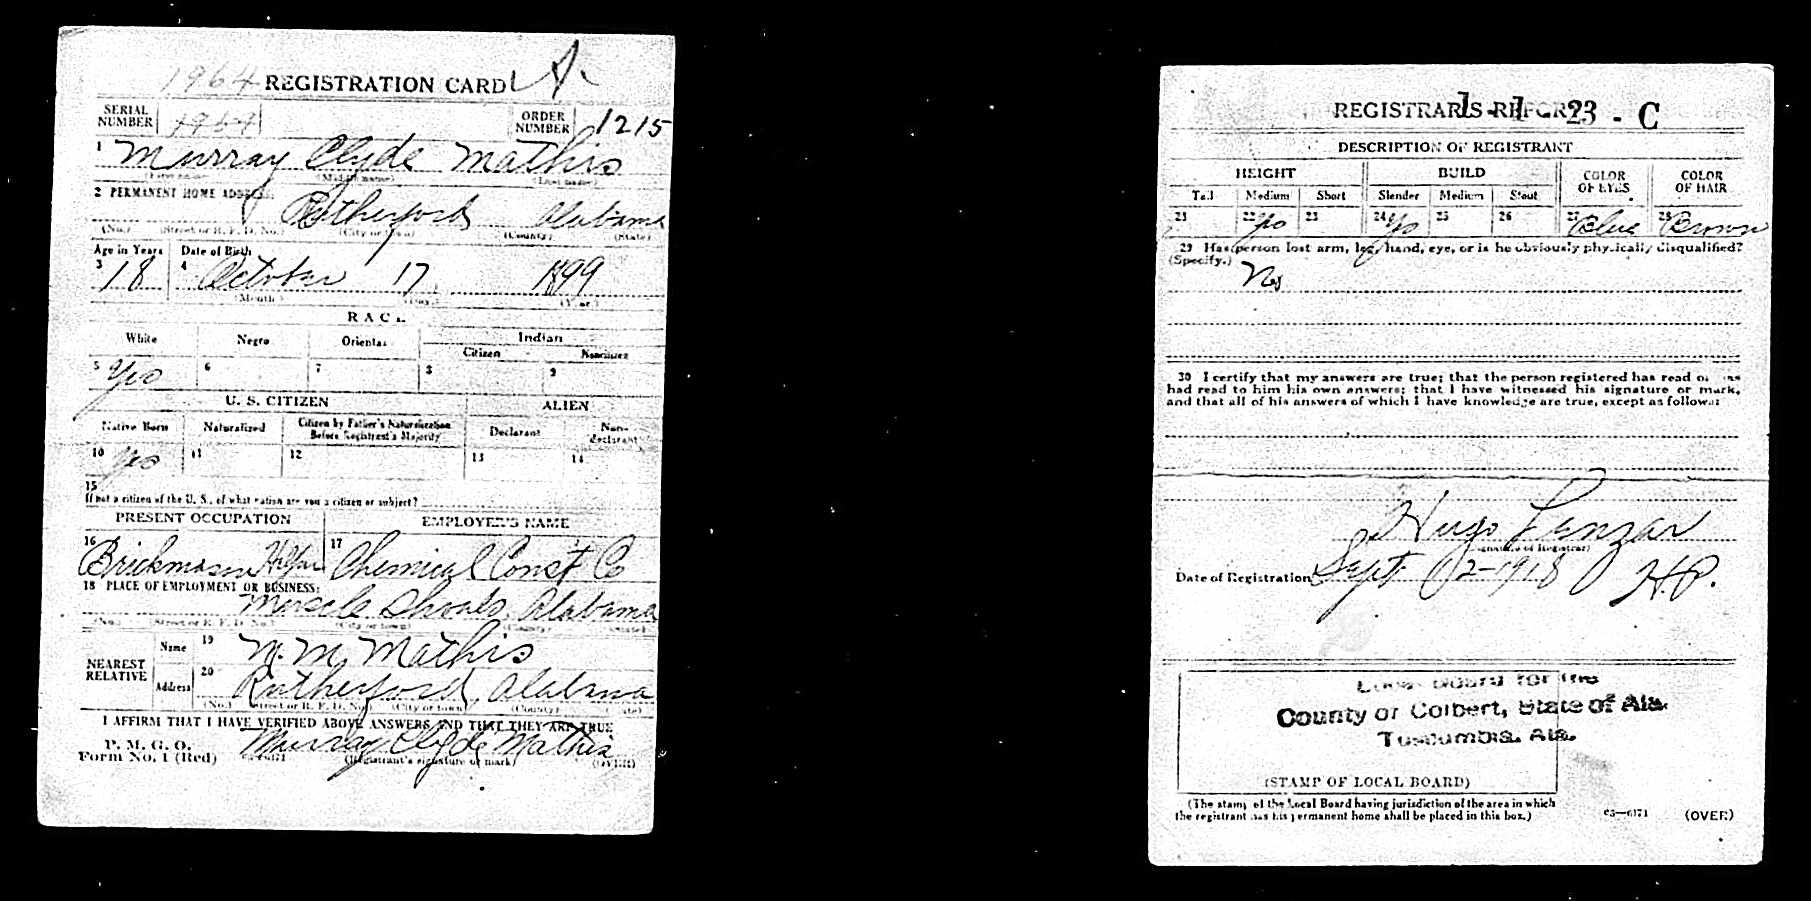 1964 REGISTRATION CARD A
SERIAL NUMBER 1964 ORDER NUMBER 1215
1 Murray Clyde Mathis
(First name) (Middle name) (Last name)
2 PERMANENT HOME ADDRESS:
Rutherford Alabama
(No.) (Street or R. F. D. No.) (City or town) (County) (State)
Age in Years Date of Birth
3 18 4 October 17 1899
(Month.) (Day.) (Year.)
RACE
White Negro Oriental Indian
Citizen Noncitizen
5 Yes 6 7 8 9
U. S. CITIZEN ALIEN
Native Born Naturalized Citizen by Father's Naturalization Before Registrant's Majority Declarant Non-declarant
10 Yes 11 12 13 14
15
If not a citizen of the U. S., of what nation are you a citizen or subject?
PRESENT OCCUPATION EMPLOYER'S NAME
16 Brickmason Helper 17 Chemical Const Co
18 PLACE OF EMPLOYMENT OR BUSINESS:
Muscle Shoals, Alabama
(No.) (Street or R. F. D. No.) (City or town) (County) (State)
NEAREST RELATIVE Name 19 M. Mathis
Address 20 Rutherford, Alabama
(No.) (Street or R. F. D. No.) (City or town) (County) (State)
I AFFIRM THAT I HAVE VERIFIED ABOVE ANSWERS AND THAT THEY ARE TRUE
P. M. G. O.
Form No. 1 (Red) Murray Clyde Mathis
(Registrant's signature or mark) (OVER)
REGISTRAR'S REPORT 1-1-23-C
DESCRIPTION OF REGISTRANT
HEIGHT BUILD COLOR OF EYES COLOR OF HAIR
Tall Medium Short Slender Medium Stout
21 22 Yes 23 24 Yes 25 26 27 Blue 28 Brown
29 Has person lost arm, leg, hand, eye, or is he obviously physically disqualified?
(Specify.) No
30 I certify that my answers are true; that the person registered has read or has
had read to him his own answers; that I have witnessed his signature or mark,
and that all of his answers of which I have knowledge are true, except as follows:
Hugo
(Signature of Registrar)
Date of Registration Sept 12-1918 H.P.
Local Board for the
County of Colbert, State of Ala.
Tuscumbia, Ala.
(STAMP OF LOCAL BOARD)
(The stamp of the Local Board having jurisdiction of the area in which
the registrant has his permanent home shall be placed in this box.)
(OVER)